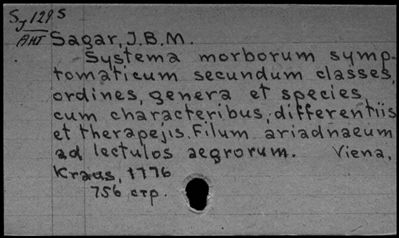 Sy 129 S
Ант
Sagar, J.B.M.
Systema morborum symp-
tomaticum secundum classes,
ordines, genera et species
cum characteribus, differentiis
et therapejis. Filum ariadnaeum
ad lectulos aegrorum. Viena,
Kraus, 1776
756 стр.